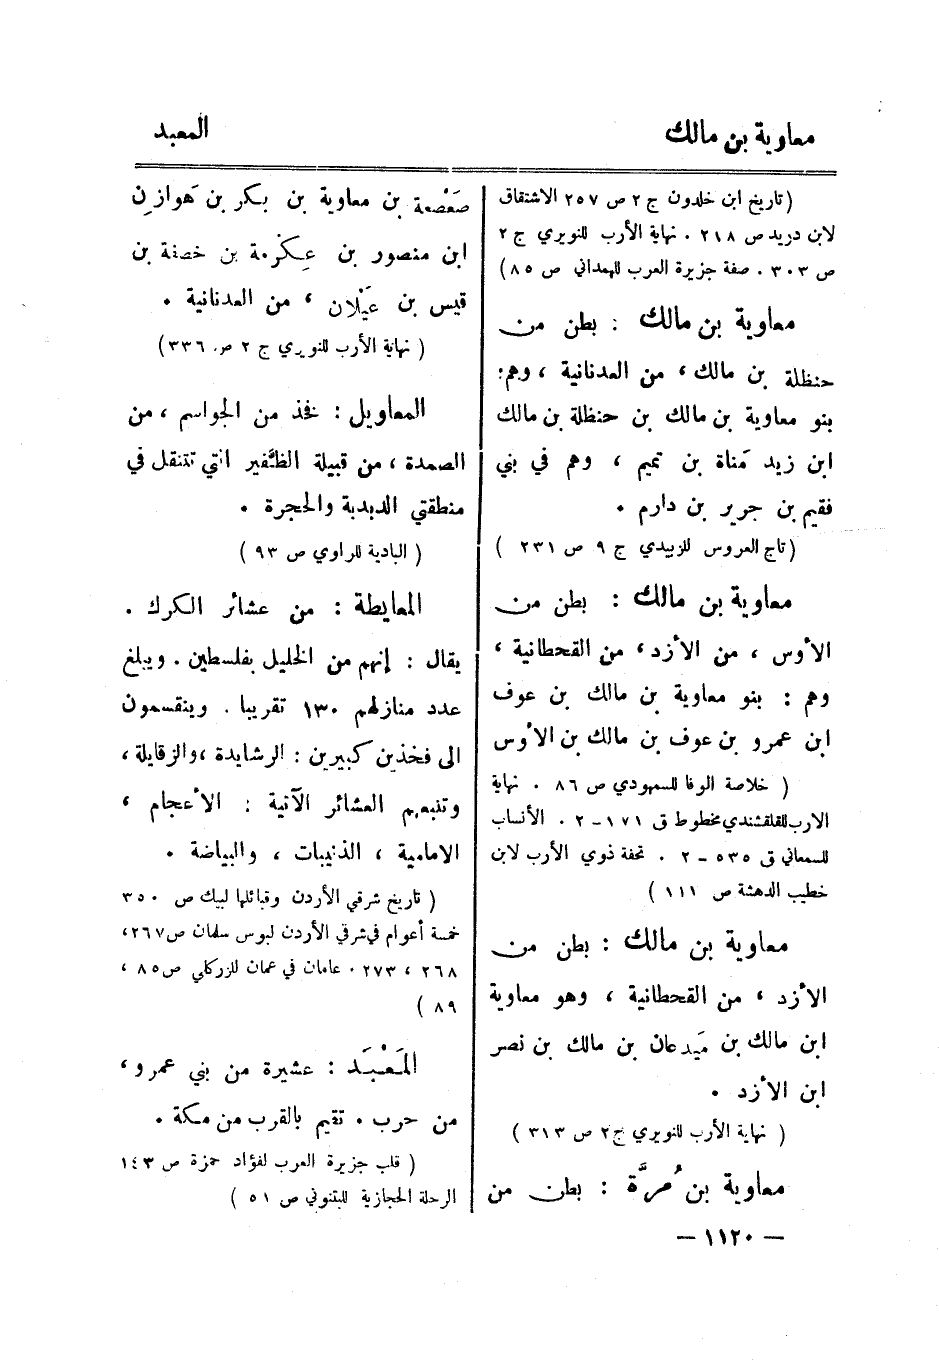 معاوية بن مالك
المعبد
( تاريخ ابن خلدون ج ٢ ص ٢٥٧ الاشتقاق
لابن دريد ص ٢١٨ . نهاية الأرب للنويري ج ٢
ص ٣٠٣ . صفة جزيرة العرب للهمداني ص ٨٥ )
معاوية بن مالك : بطن من
حنظلة بن مالك ، من العدنانية ، وهم :
بنو معاوية بن مالك بن حنظلة بن مالك
ابن زيد مَناة بن تميم ، وهم في بني
فقيم بن جرير بن دارم .
( تاج العروس للزبيدي ج ٩ ص ٢٣١ )
معاوية بن مالك : بطن من
الأوس ، من الأزد ، من القحطانية ،
وهم : بنو معاوية بن مالك بن عوف
ابن عمرو بن عوف بن مالك بن الأوس
( خلاصة الوفا للسمهودي ص ٨٦ . نهاية
الارب للقلقشندي مخطوط ق ١٧١ – ٢ . الأنساب
للسمعاني ق ٥٣٥ – ٢ . تحفة ذوي الأرب لابن
خطيب الدهشة ص ١١١ )
معاوية بن مالك : بطن من
الأزد ، من القحطانية ، وهو معاوية
ابن مالك بن مَيدعان بن مالك بن نصر
ابن الأزد .
( نهاية الأرب للنويري ج ٢ ص ٣١٣ )
معاوية بن مُرَّة : بطن من
صَعْصَعة بن معاوية بن بكر بن هَوازِن
ابن منصور بن عِكْرمة بن خصفة بن
قيس بن عَيْلان ، من العدنانية .
( نهاية الأرب للنويري ج ٢ ص ٣٣٦ )
المعاويل : فخذ من الجواسم ، من
الصمدة ، من قبيلة الظَّفير التي تتنقل في
منطقتي الدبدبة والحجرة .
( البادية للراوي ص ٩٣ )
المعايطة : من عشائر الكرك .
يقال : إنهم من الخليل بفلسطين . ويبلغ
عدد منازلهم ١٣٠ تقريبا . وينقسمون
الى فخذين كبيرين : الرشايدة ، والزقايلة ،
وتتبعهم العشائر الآتية : الأعجام ،
الامامية ، الذنيبات ، والبياضة .
( تاريخ شرقي الأردن وقبائلها لبيك ص ٣٥٠
خمسة أعوام في شرقي الأردن لبوس سلمان ص ٢٦٧ ،
٢٦٨ ، ٢٧٣ . عامان في عمان للزركلي ص ٨٥ ،
٨٩ )
المَعْبَد : عشيرة من بني عمرو ،
من حرب . تقيم بالقرب من مكة .
( قلب جزيرة العرب لفؤاد حمزة ص ١٤٣
الرحلة الحجازية للبتنوني ص ٥١ )
— ١١٢٠ —